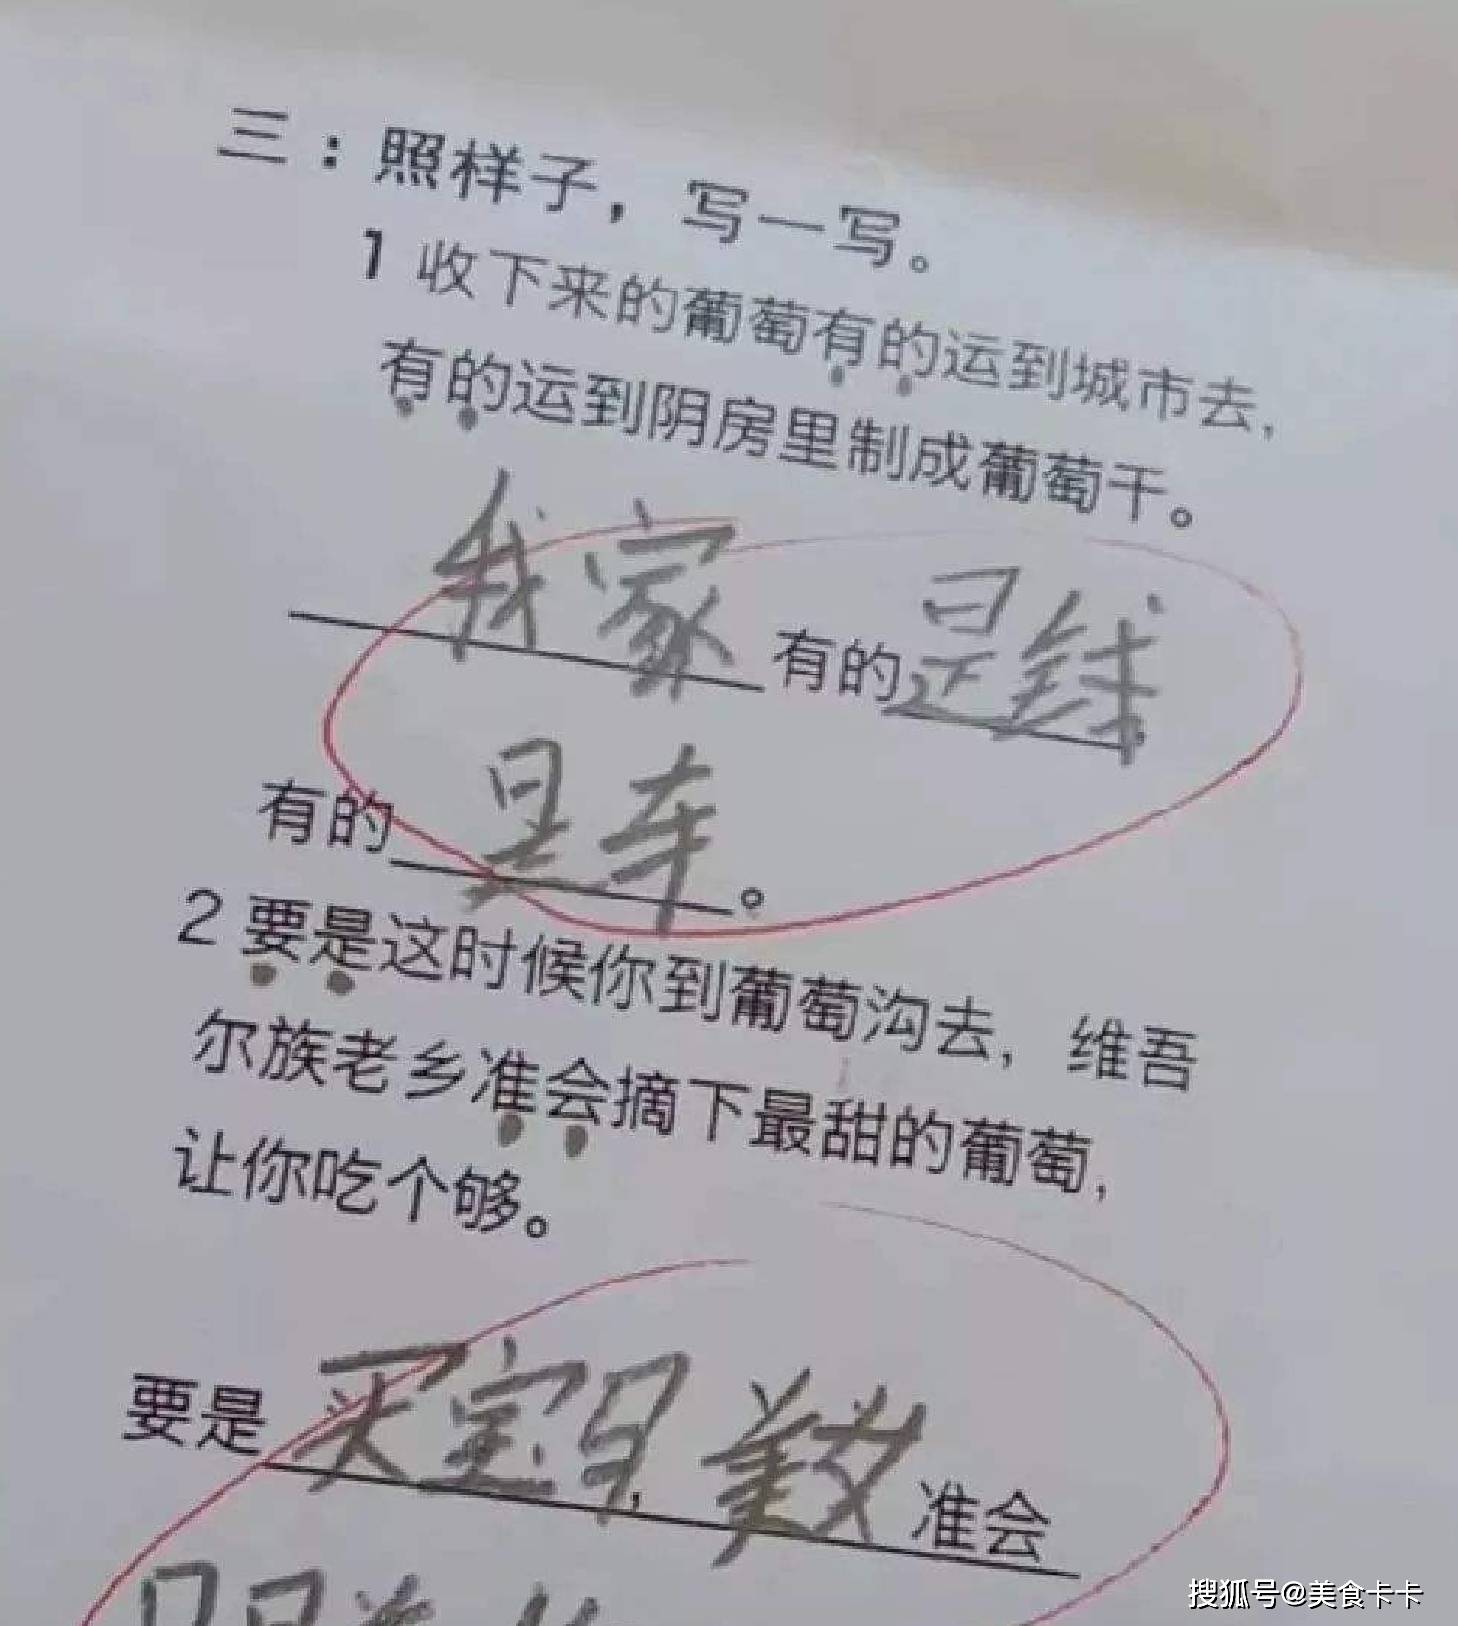 三：照样子，写一写。
1 收下来的葡萄有的运到城市去，
有的运到阴房里制成葡萄干。
我家有的是钱，
有的是车。
2 要是这时候你到葡萄沟去，维吾
尔族老乡准会摘下最甜的葡萄，
让你吃个够。
要是买宝马，美女准会
搜狐号@美食卡卡